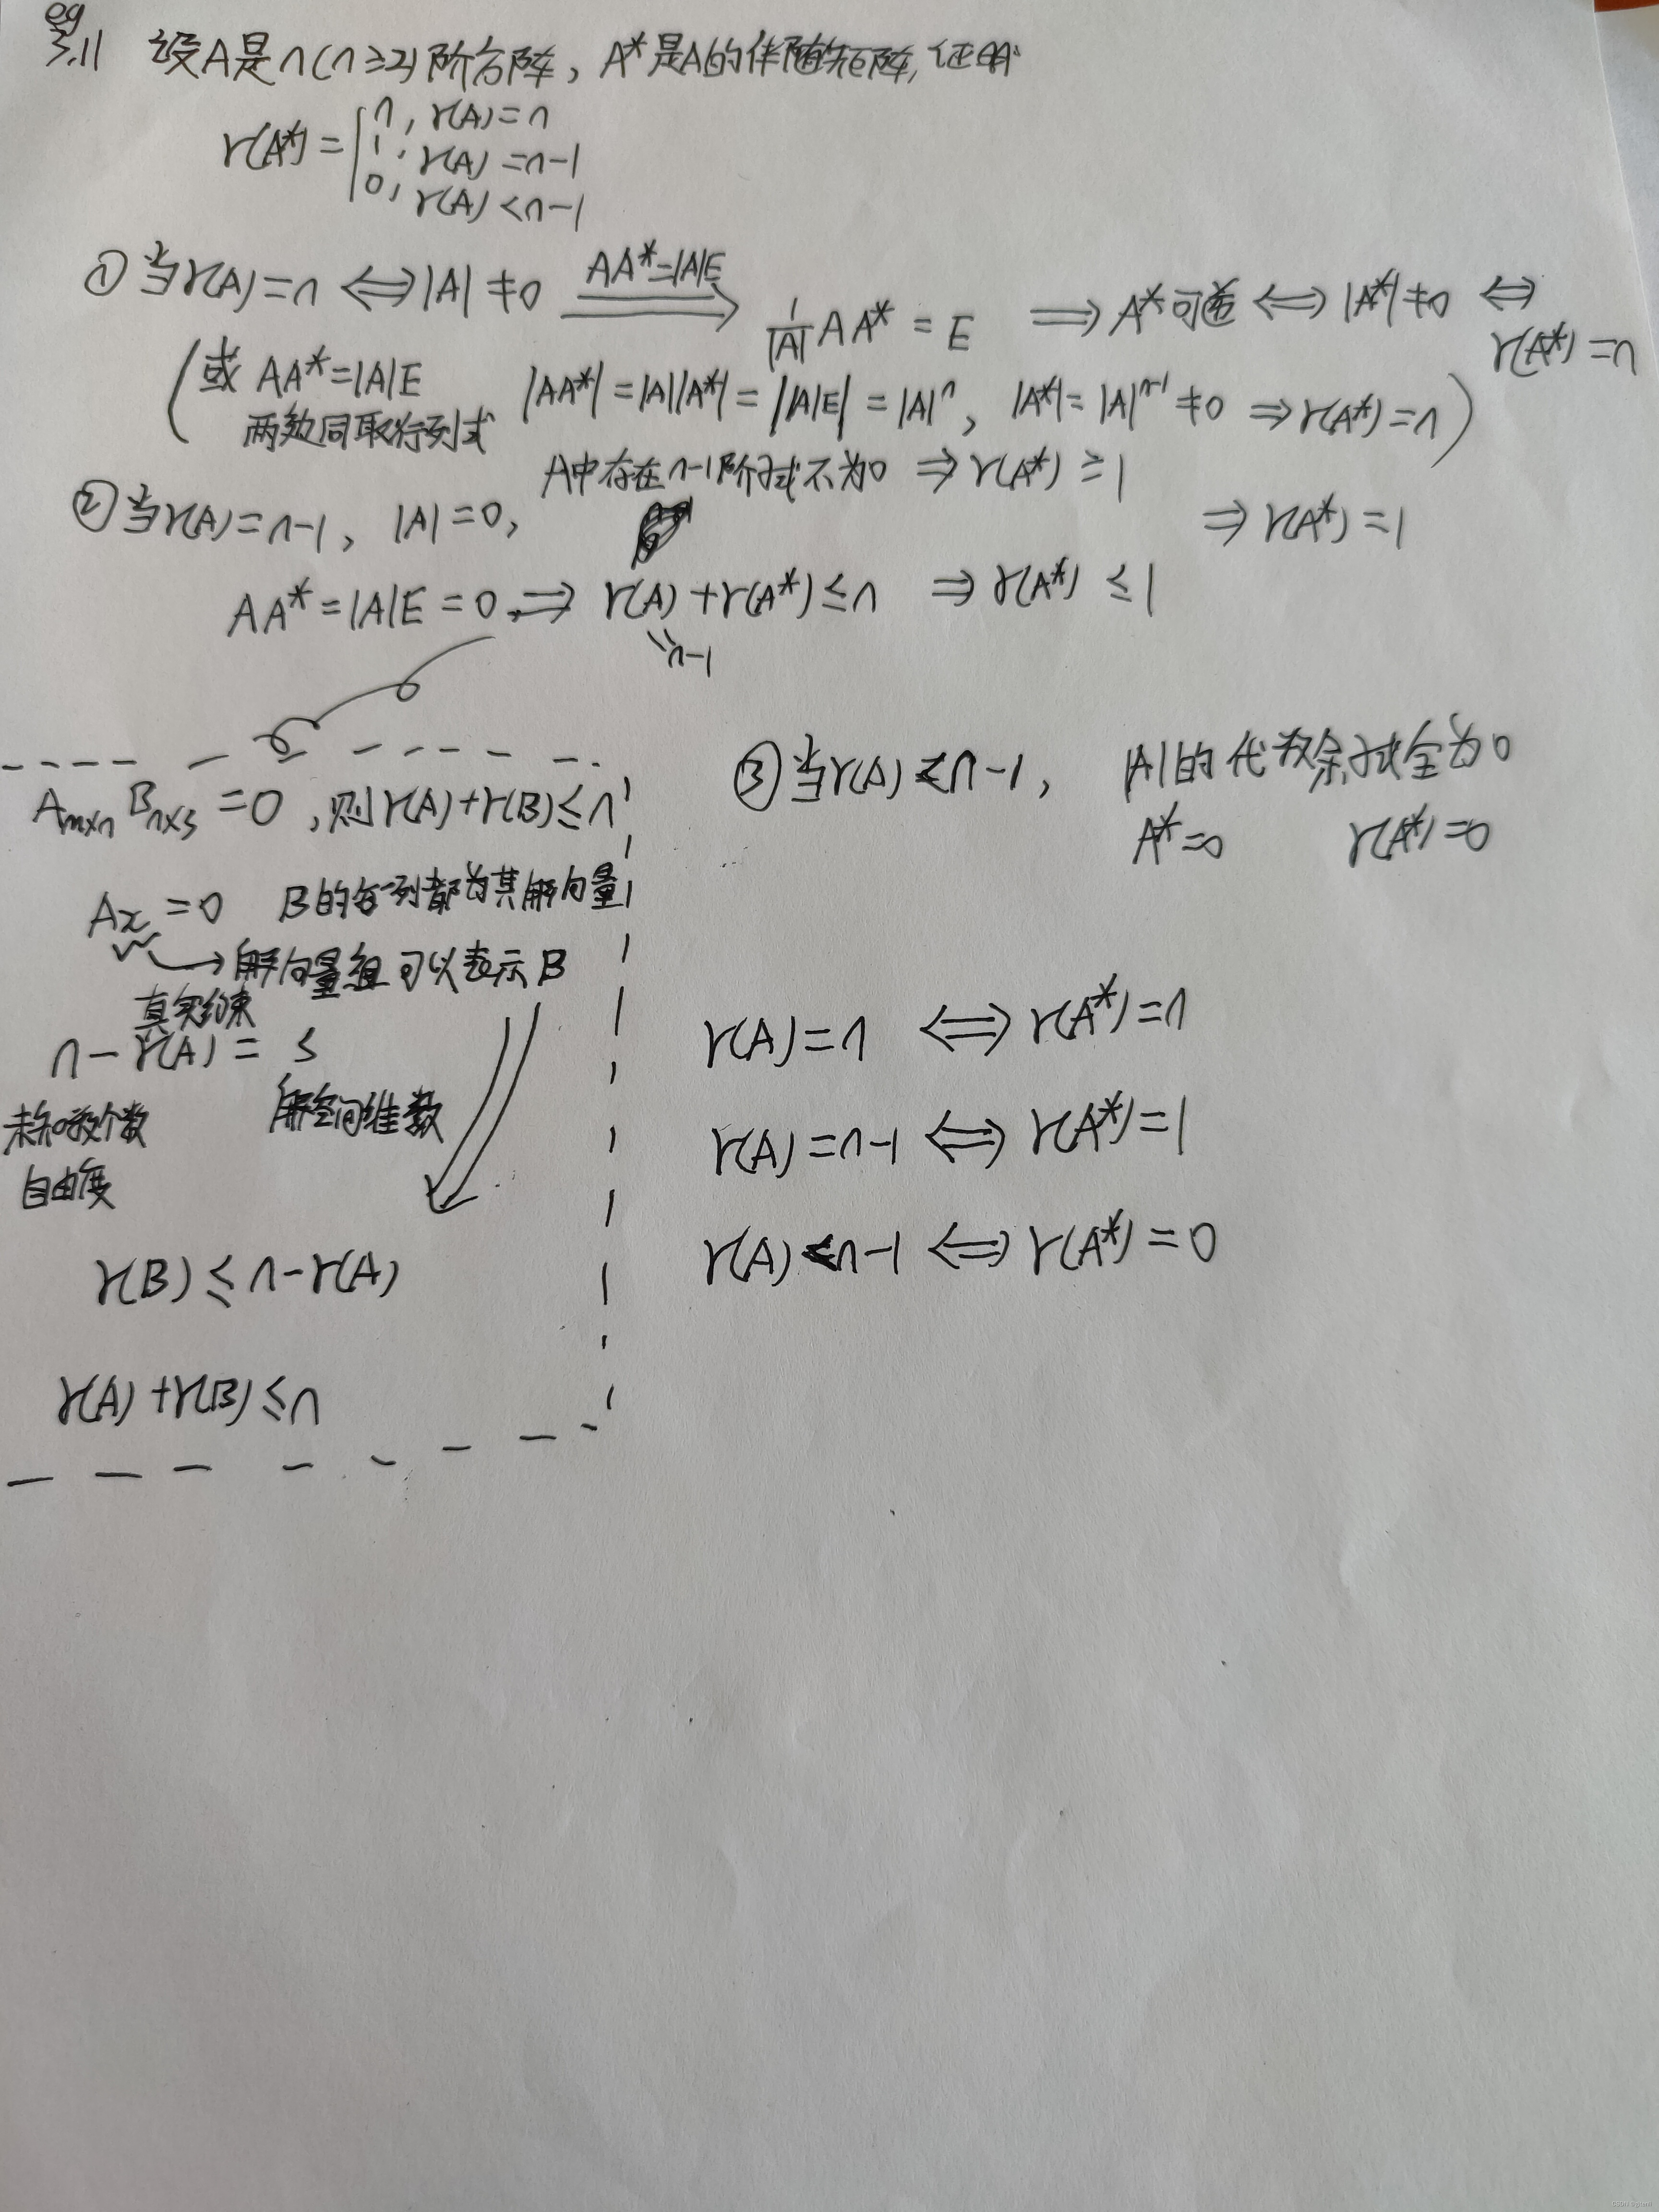 eg
3.11 设A是n(n≥2)阶方阵, A*是A的伴随矩阵, 证明
r(A*) = { n, r(A)=n
1, r(A)=n-1
0, r(A)<n-1
① 当r(A)=n ⟺ |A|≠0 ⟹ (AA*=|A|E) 1/|A| AA* = E ⟹ A*可逆 ⟺ |A*|≠0 ⟺ r(A*)=n
(或 AA*=|A|E |AA*|=|A||A*|=||A|E|=|A|ⁿ, |A*|=|A|ⁿ⁻¹≠0 ⟹ r(A*)=n)
两边同取行列式
A中存在n-1阶子式不为0 ⟹ r(A*)≥1
② 当r(A)=n-1, |A|=0, ⟹ r(A*)=1
AA*=|A|E=0 ⟹ r(A)+r(A*)≤n ⟹ r(A*)≤1
n-1
A_{m×n} B_{n×s} = 0, 则r(A)+r(B)≤n
Ax=0 B的每一列都为其解向量
解向量组可以表示B
真实约束
n - r(A) = s
未知数个数 解空间维数
自由度
r(B) ≤ n-r(A)
r(A)+r(B)≤n
③ 当r(A)<n-1, |A|的代数余子式全为0
A*=0 r(A*)=0
r(A)=n ⟺ r(A*)=n
r(A)=n-1 ⟺ r(A*)=1
r(A)<n-1 ⟺ r(A*)=0